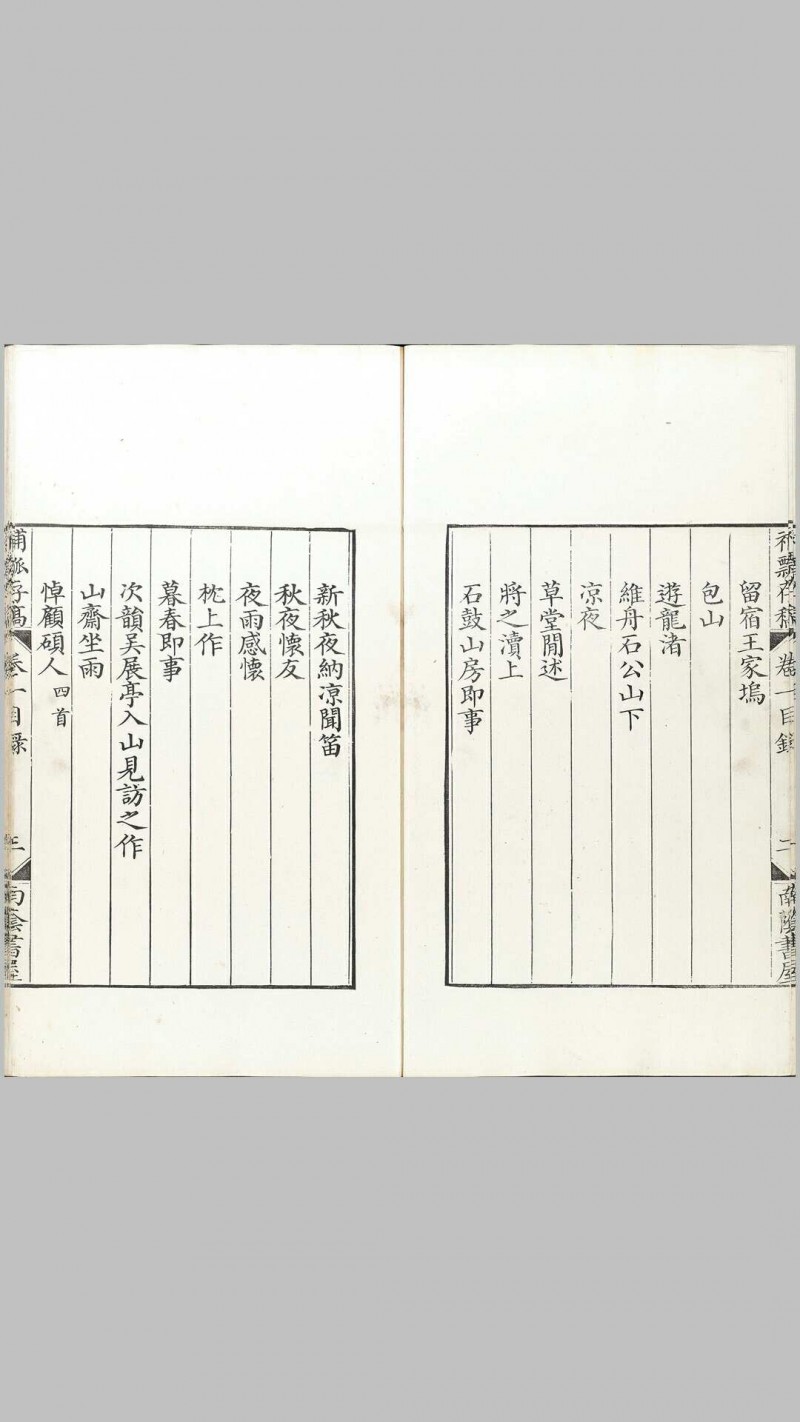 留宿王家塢
包山
遊龍渚
維舟石公山下
凉夜
草堂閒述
將之瀆上
石鼓山房即事
新秋夜納凉聞笛
秋夜懷友
夜雨感懷
枕上作
暮春即事
次韻吴展亭入山見訪之作
山齋坐雨
悼顧碩人 四首
存稿 卷一目録
三
南蔭書屋